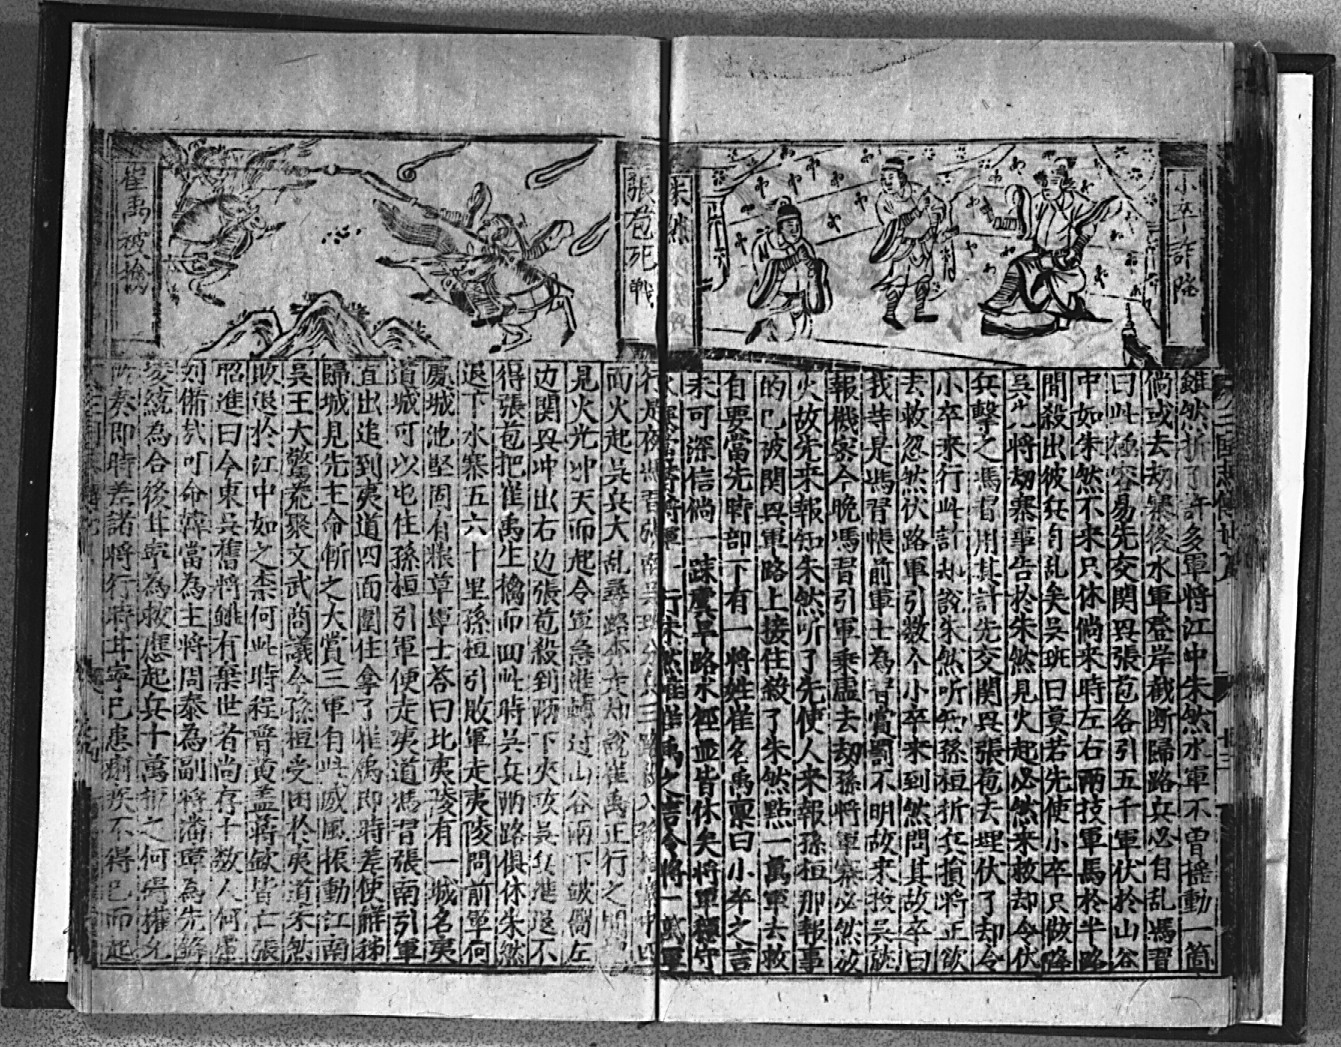 小卒詐降
朱然
雖然折了許多軍將江中朱然水軍不曾擡動一箇
倘或去刼寨後水軍登岸截断歸路兵必自乱馮習
曰此極容易先交関興張苞各引五千軍伏於山谷
中如朱然不來只休倘來時左右兩技軍馬於半路
間殺出彼兵自乱矣吳班曰莫若先使小卒只做降
吳兵將刼寨事告於朱然見火起必然來救却令伏
兵擊之馮習用其計先交関興張苞去埋伏了却令
小卒來行此計却說朱然听知孫桓折兵損將正欲
去救忽然伏路軍引数个小卒來到然問其故卒曰
我等是馮習帳前軍士為習賞罰不明故來投吳旋
報機密今晚馮習引軍乗虛去刼孫將軍寨必然放
火故先來報知朱然听了先使人來報孫桓那報事
的已被関興軍路上接住殺了朱然點一萬軍去救
自要當先時部下有一將姓崔名禹禀曰小卒之言
未可深信倘一踈虞旱路水徑並皆休矣將軍穩守
水寨 將軍一行朱然准崔禹之言令將一萬軍
張苞死戰
崔禹被擒
行是夜馮習張南吳班分兵三路
而火起吳兵大乱尋路奔走却說崔禹正行之間
見火光冲天而起令軍急進轉过山谷兩下皷响左
边関興冲出右边張苞殺到兩下夾攻吳兵進退不
得張苞把崔禹生擒而回此時吳兵兩路俱休朱然
退下水寨五六十里孫桓引敗軍走夷陵問前軍何
處城池堅固有粮草軍士答曰此夷陵有一城名夷
道城可以屯住孫桓引軍便走夷道馮習張南引軍
直出追到夷道四面圍住拿了崔禹即時差使解秭
歸城見先主命斬之大賞三軍自此威風振動江南
吳王大驚慌聚文武商議今孫桓受困於夷道朱然
敗退於江中如之柰何此時程普黄盖蒋欽皆亡張
昭進曰今東吳舊將雖有棄世者尚存十数人何慮
刘備哉可命韓當為主將周泰為副將潘璋為先鋒
凌統為合後甘寧為救應起兵十萬拒之何碍權允
所奏即時差諸將行時甘寧已患痢疾不得已而起